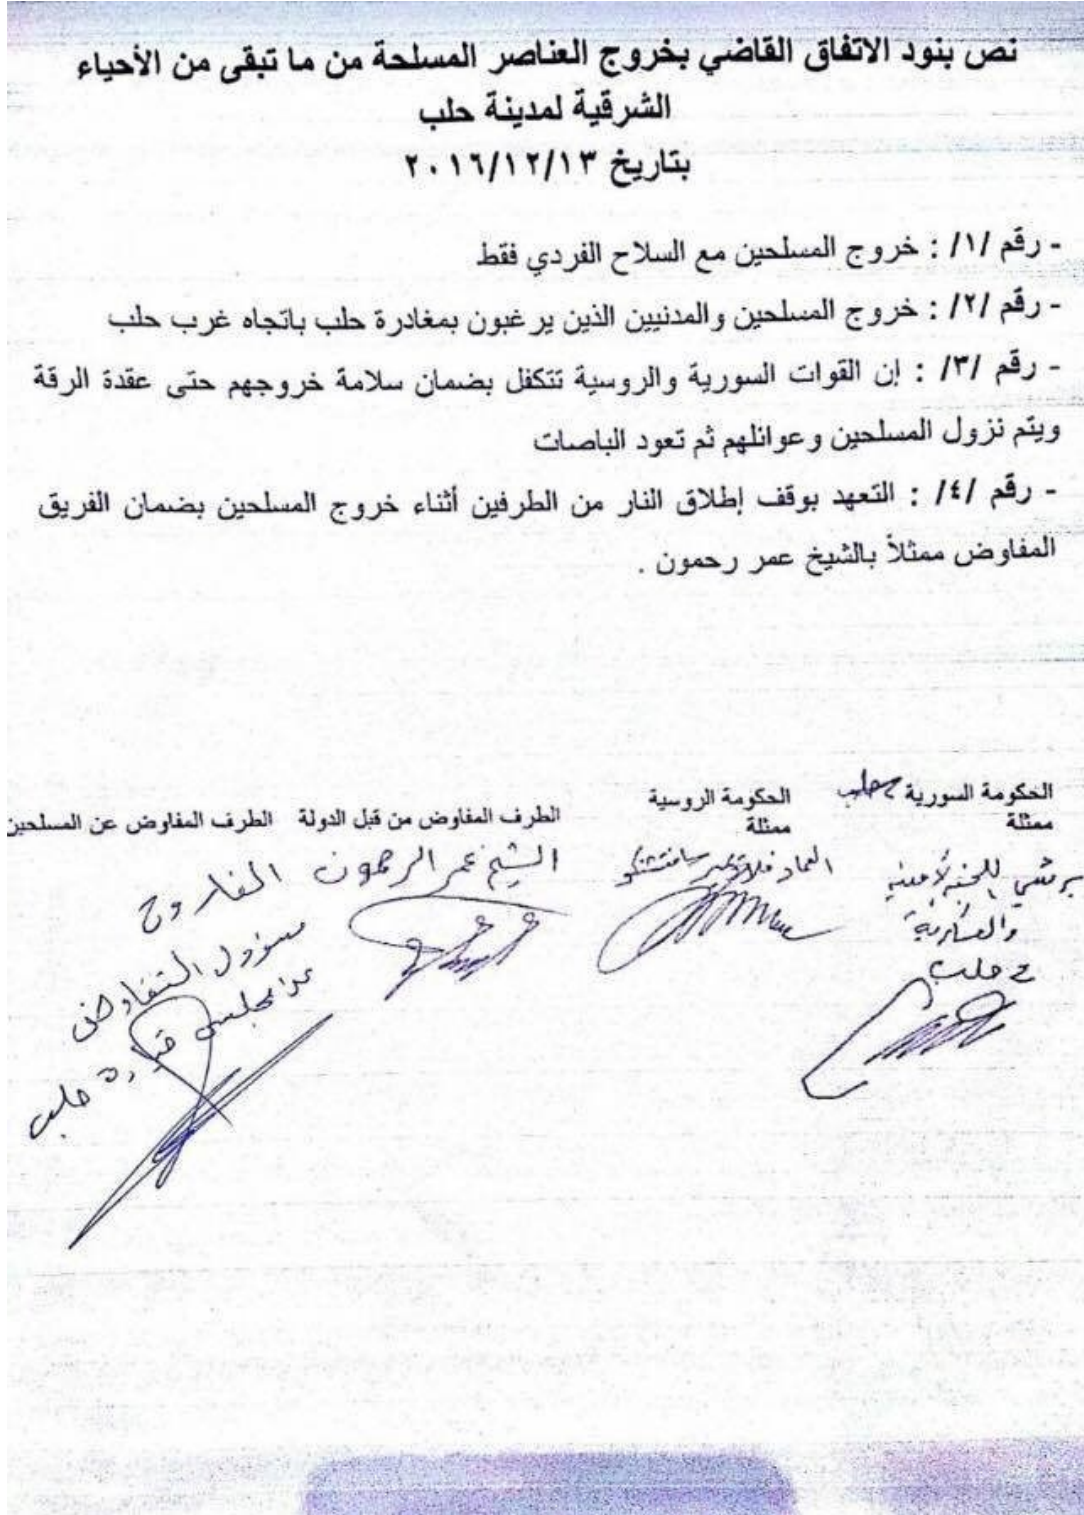 نص بنود الاتفاق القاضي بخروج العناصر المسلحة من ما تبقى من الأحياء
الشرقية لمدينة حلب
بتاريخ ٢٠١٦/١٢/١٣
- رقم /١/ : خروج المسلحين مع السلاح الفردي فقط
- رقم /٢/ : خروج المسلحين والمدنيين الذين يرغبون بمغادرة حلب باتجاه غرب حلب
- رقم /٣/ : إن القوات السورية والروسية تتكفل بضمان سلامة خروجهم حتى عقدة الرقة
ويتم نزول المسلحين وعوائلهم ثم تعود الباصات
- رقم /٤/ : التعهد بوقف إطلاق النار من الطرفين أثناء خروج المسلحين بضمان الفريق
المفاوض ممثلاً بالشيخ عمر رحمون .
الحكومة السورية بحلب
ممثلة
للجنة الأمنية
والعسكرية
في حلب
الحكومة الروسية
ممثلة
العماد
الطرف المفاوض من قبل الدولة
الشيخ عمر الرحمون
الطرف المفاوض عن المسلحين
الفاروق
مسؤول التفاوض
عن مجلس قيادة حلب